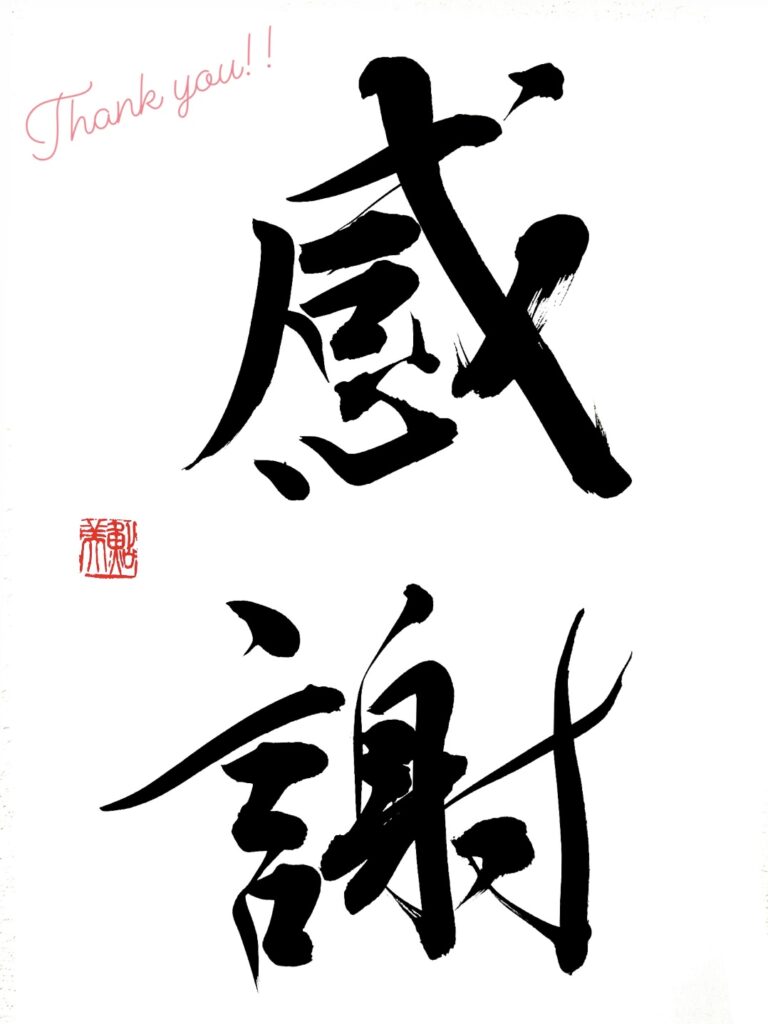 Thank you!!
感謝
鮎美